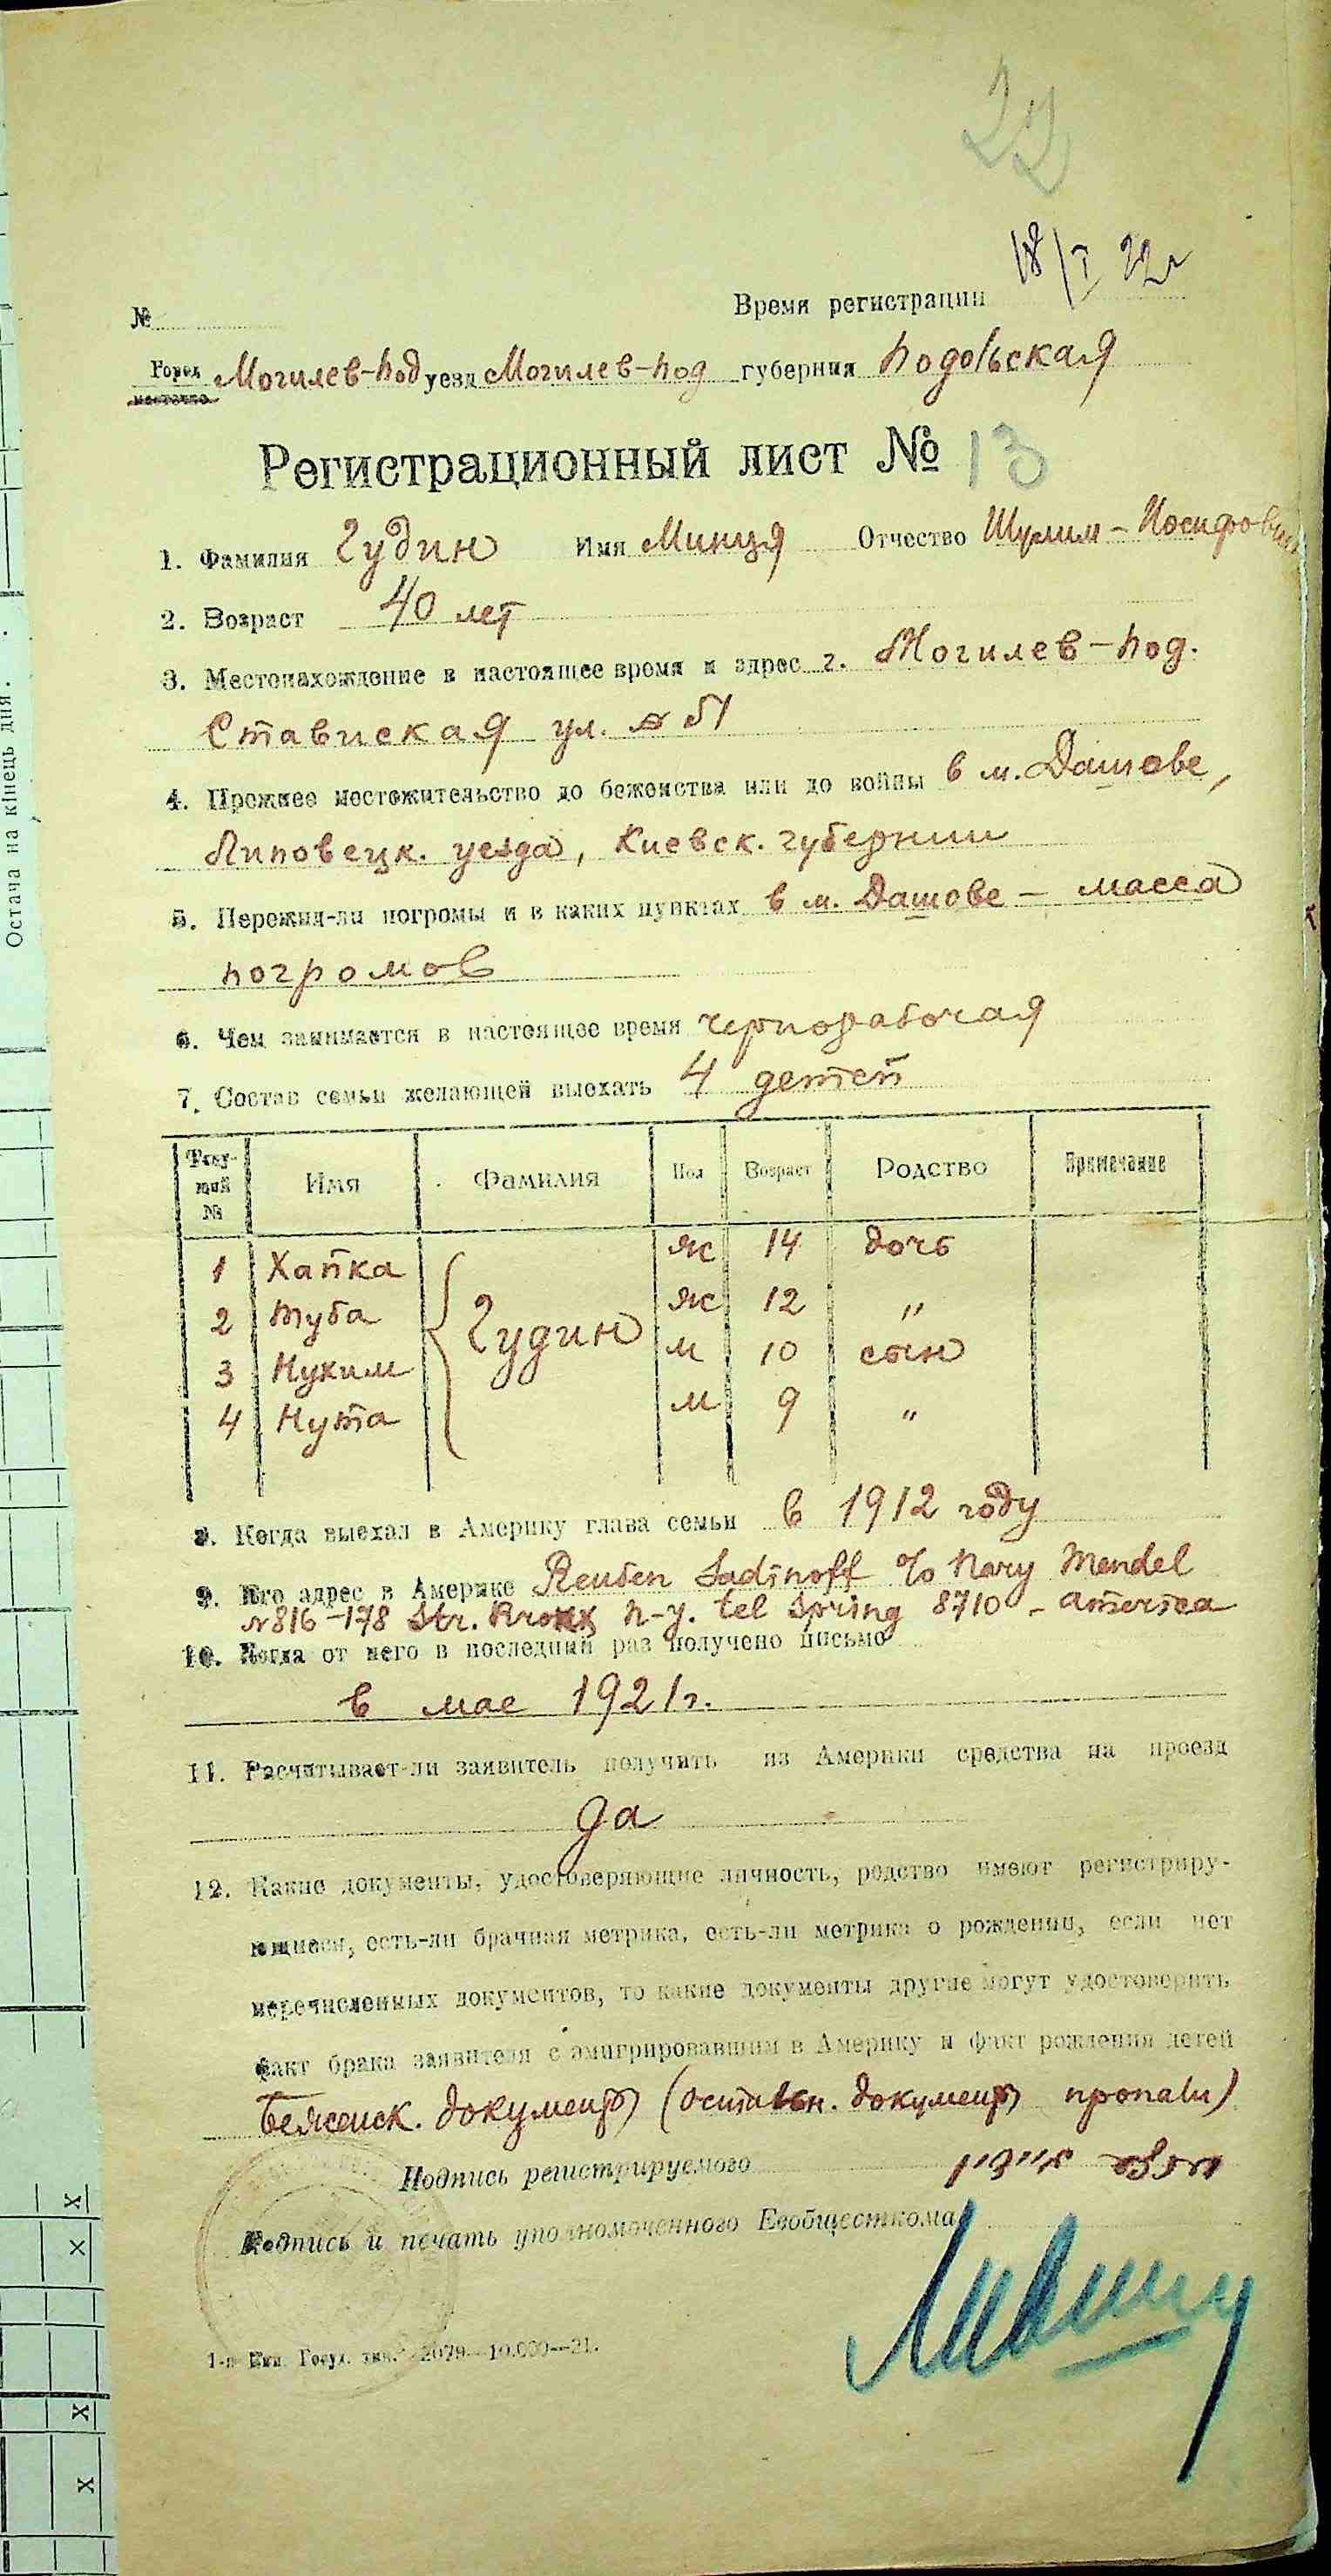 22
18/I 22г
№ Время регистрации
Город Могилев-под уезд Могилев-под губерния Подольская
местечко
Регистрационный лист № 13
1. Фамилия Гудин Имя Минця Отчество Шулим-Иосифов
2. Возраст 40 лет
3. Местонахождение в настоящее время и адрес г. Могилев-под.
Ставиская ул. № 51
4. Прежнее местожительство до беженства или до войны в м. Дашове,
Липовецк. уезда, Киевск. губернии
5. Пережил-ли погромы и в каких пунктах в м. Дашове – масса
погромов
6. Чем занимается в настоящее время чернорабочая
7. Состав семьи желающей выехать 4 детей
Теку-щий № Имя Фамилия Пол Возраст Родство Примечание
1 Хайка ж 14 дочь
2 Туба Гудин ж 12 "
3 Нухим м 10 сын
4 Нута м 9 "
8. Когда выехал в Америку глава семьи в 1912 году
9. Его адрес в Америке Reuben Sadinoff c/o Nary Mendel
№816-178 Str. Bronx N-y. tel Spring 8710 - America
10. Когда от него в последний раз получено письмо
в мае 1921г.
11. Расчитывает-ли заявитель получить из Америки средства на проезд
да
12. Какие документы, удостоверяющие личность, родство имеют регистриру-
ющиеся, есть-ли брачная метрика, есть-ли метрика о рождении, если нет
перечисленных документов, то какие документы другие могут удостоверить
факт брака заявителя с эмигрировавшим в Америку и факт рождения детей
Беженск. документ (остальн. документ пропали)
Подпись регистрируемого
Подпись и печать уполномоченного Евобщесткома
Остача на кінець дня.
х
х
х
х